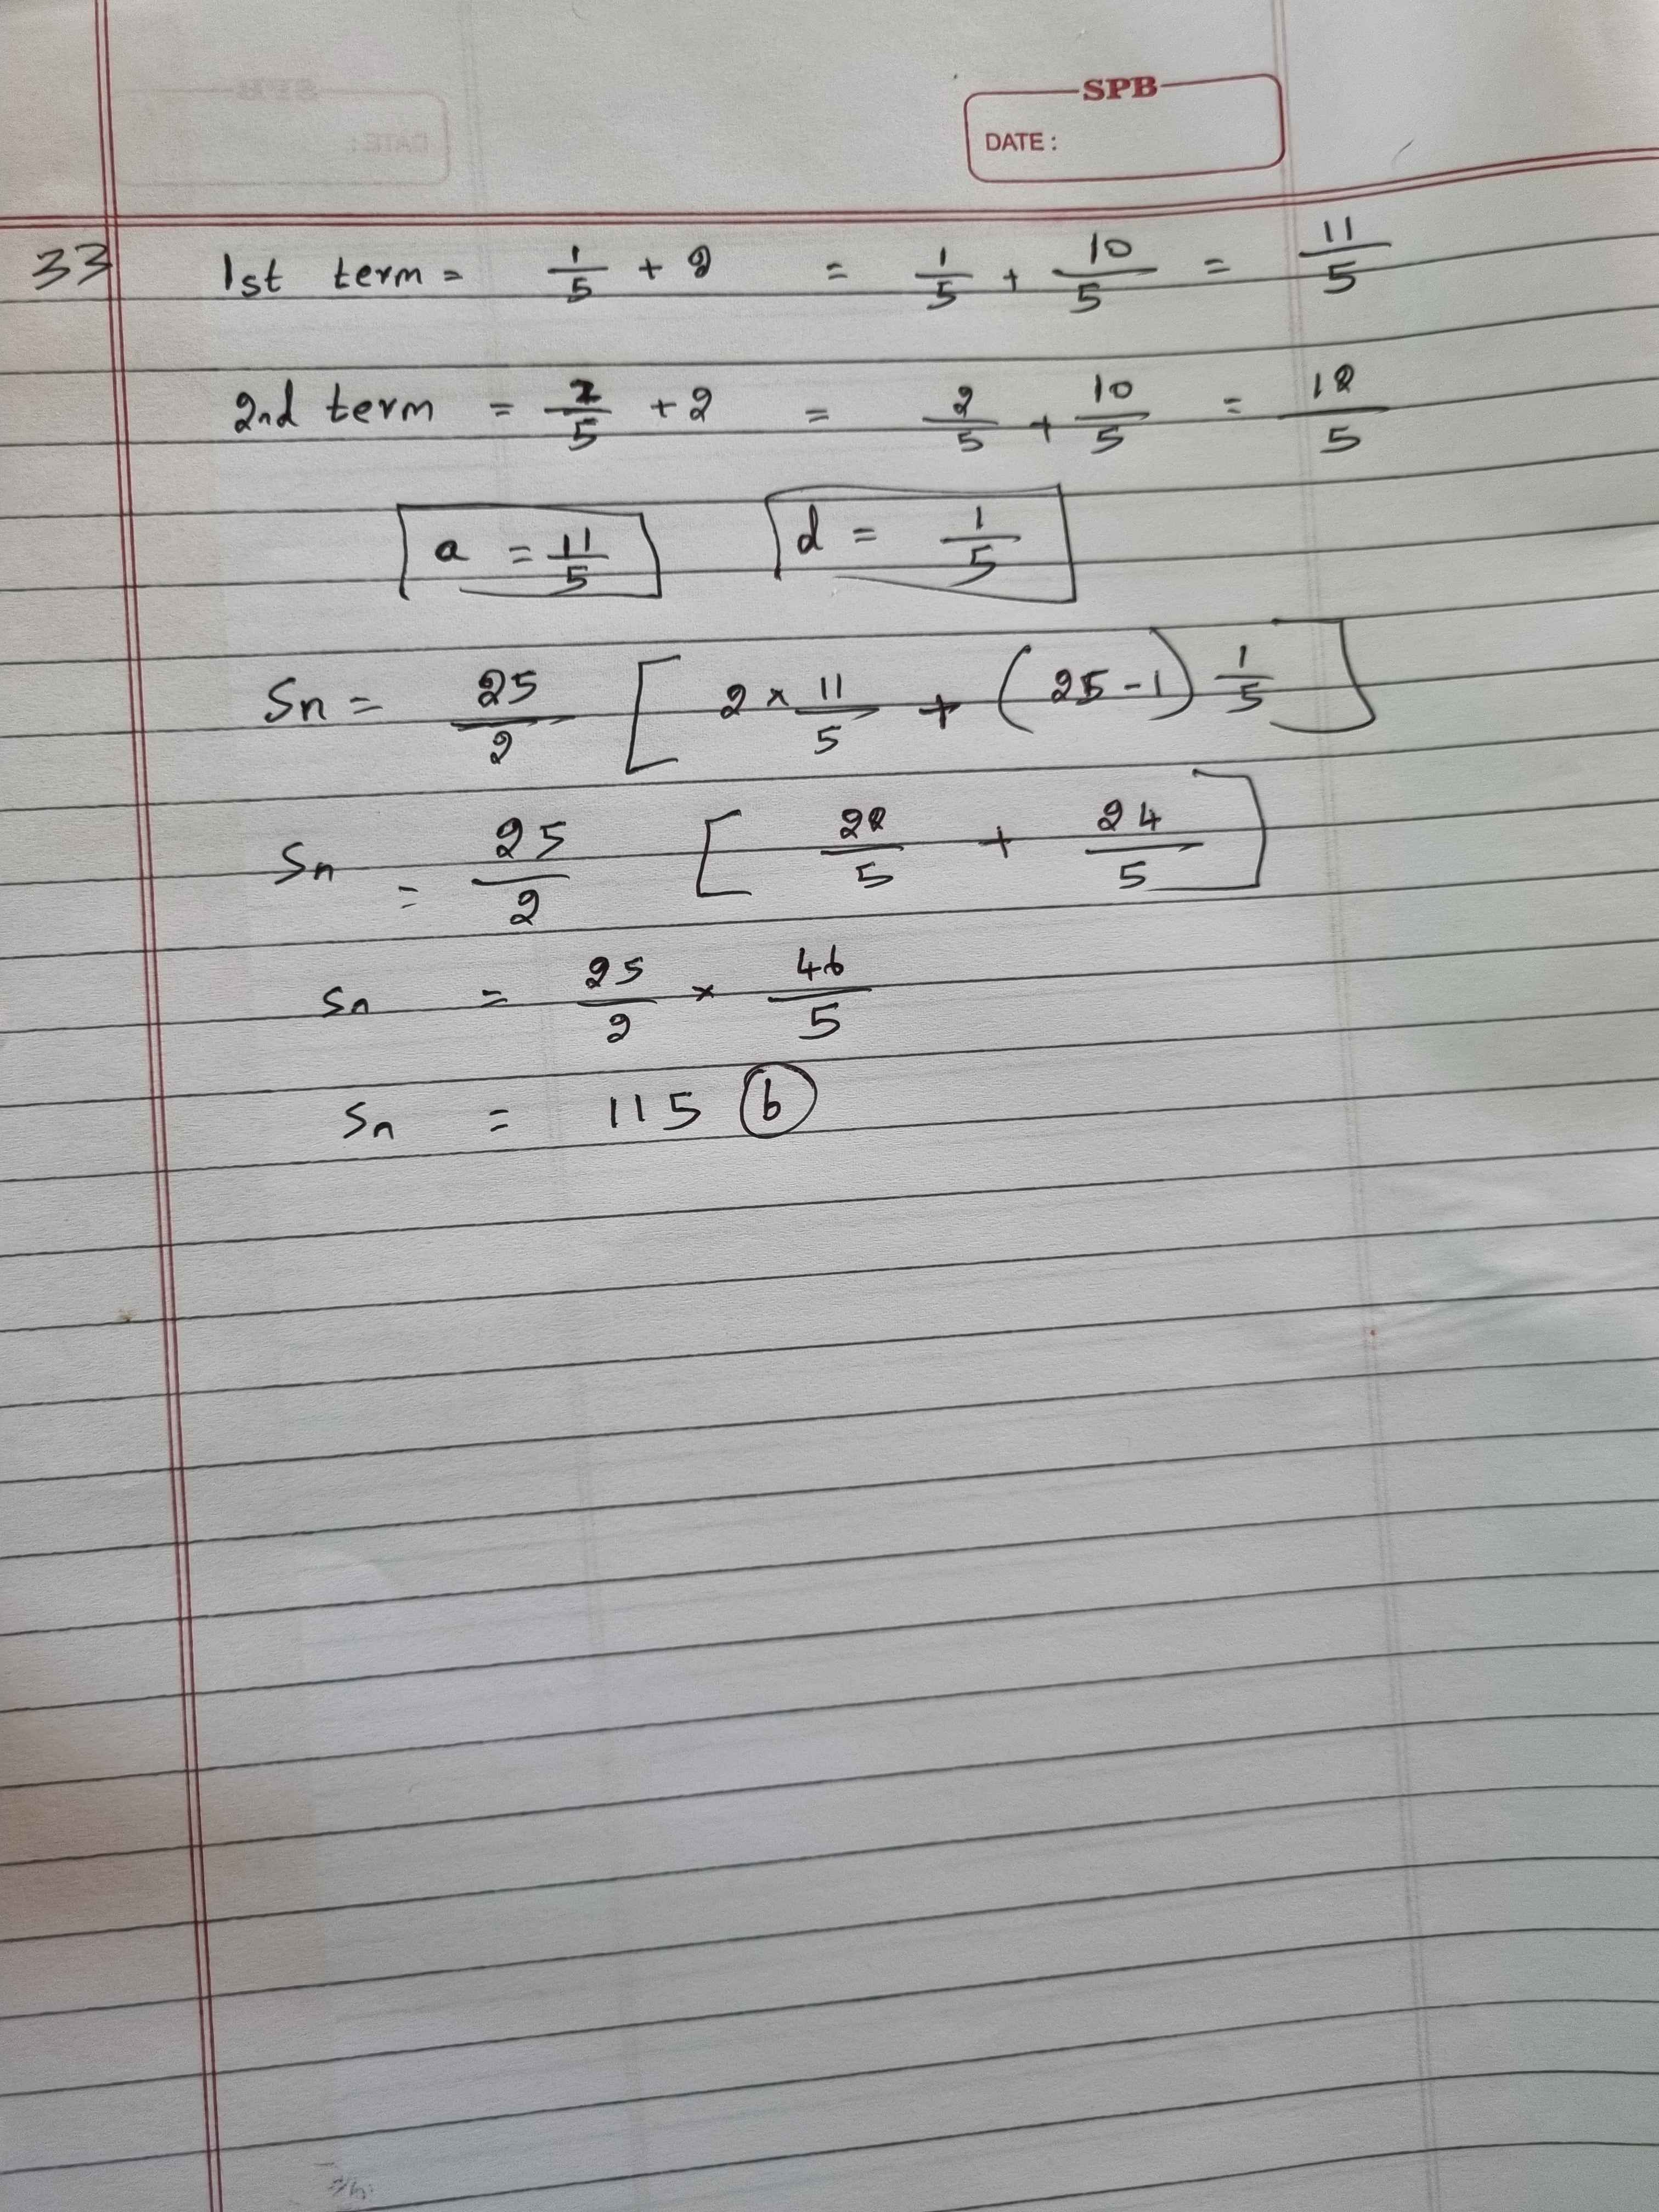 SPB
DATE :
33 1st term = 1/5 + 2 = 1/5 + 10/5 = 11/5
2nd term = 2/5 + 2 = 2/5 + 10/5 = 12/5
a = 11/5 d = 1/5
Sn = 25/2 [ 2 × 11/5 + (25 - 1) 1/5 ]
Sn = 25/2 [ 22/5 + 24/5 ]
Sn = 25/2 × 46/5
Sn = 115 (b)